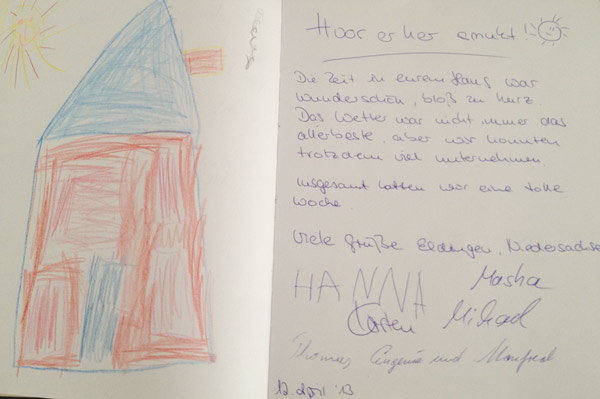 Hvor er her smukt!
Die Zeit in eurem Haus war
wunderschön, bloß zu kurz.
Das Wetter war nicht immer das
allerbeste, aber wir konnten
trotzdem viel unternehmen
Insgesamt hatten wir eine tolle
Woche.
Viele Grüße Niedersachsen
HANNA Masha
Karsten Michael
Thomas, Eugenie und Manfred
12. April '13